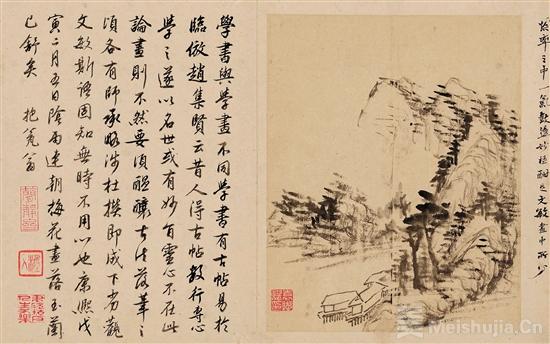 率之中一氣鼓盪妙極酣足文敏畫中所少
學書與學畫不同學書有古帖易於
臨倣趙集賢云昔人得古帖數行專心
學之遂以名世或有妙旨靈心不在此
論畫則不然要須醞釀古法落筆之
頃各有師承略涉杜撰即成下劣觀
文敏斯語固知無時不用心也康熙戊
寅二月五日陰雨連朝梅花盡落玉蘭
已舒矣 抱甕翁
Meishujia.Cn